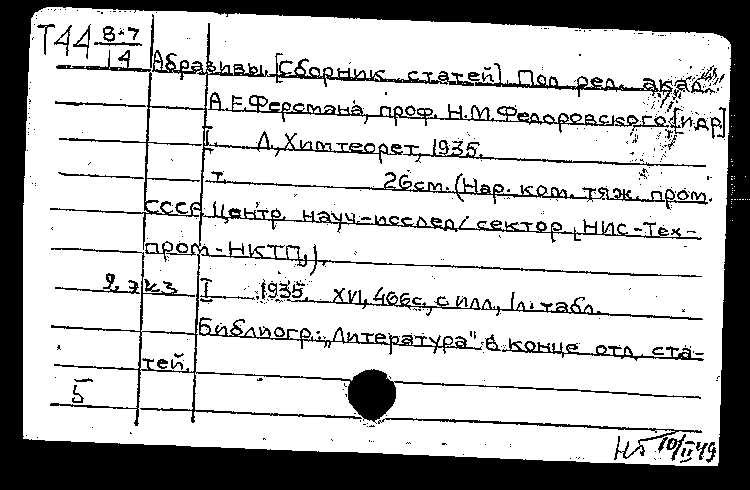 Т44 8-7
14
Абразивы. [Сборник статей]. Под ред. акад.
А.Е.Ферсмана, проф. Н.М.Федоровского [и др]
I. Л., Химтеорет, 1935.
т. 26см. (Нар. ком. тяж. пром.
СССР Центр. науч.-исслед/ сектор „НИС-Тех-
пром-НКТП„).
2 экз I 1935. XVI, 406с, с илл., 1л. табл.
Библиогр.: „Литература" в конце отд. ста-
тей.
5
10/II 49